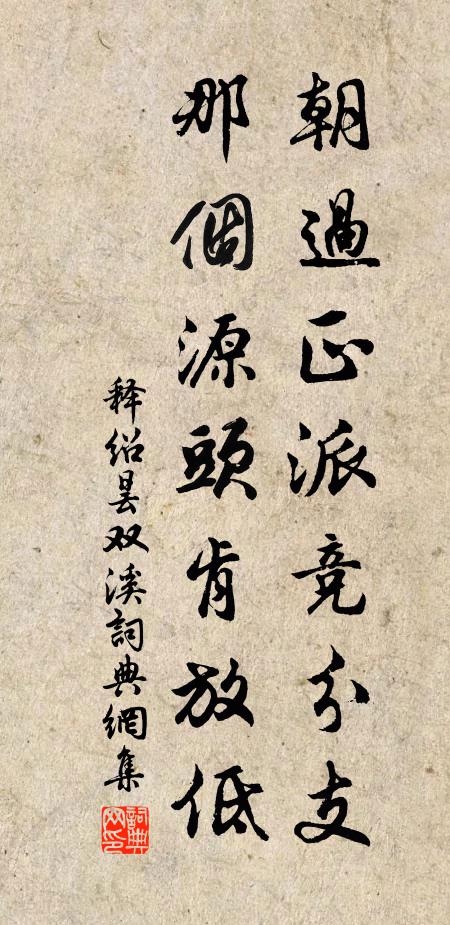 朝過正派競分支
那個源頭肯放低
释绍昙双溪詞典網集
詞典網印